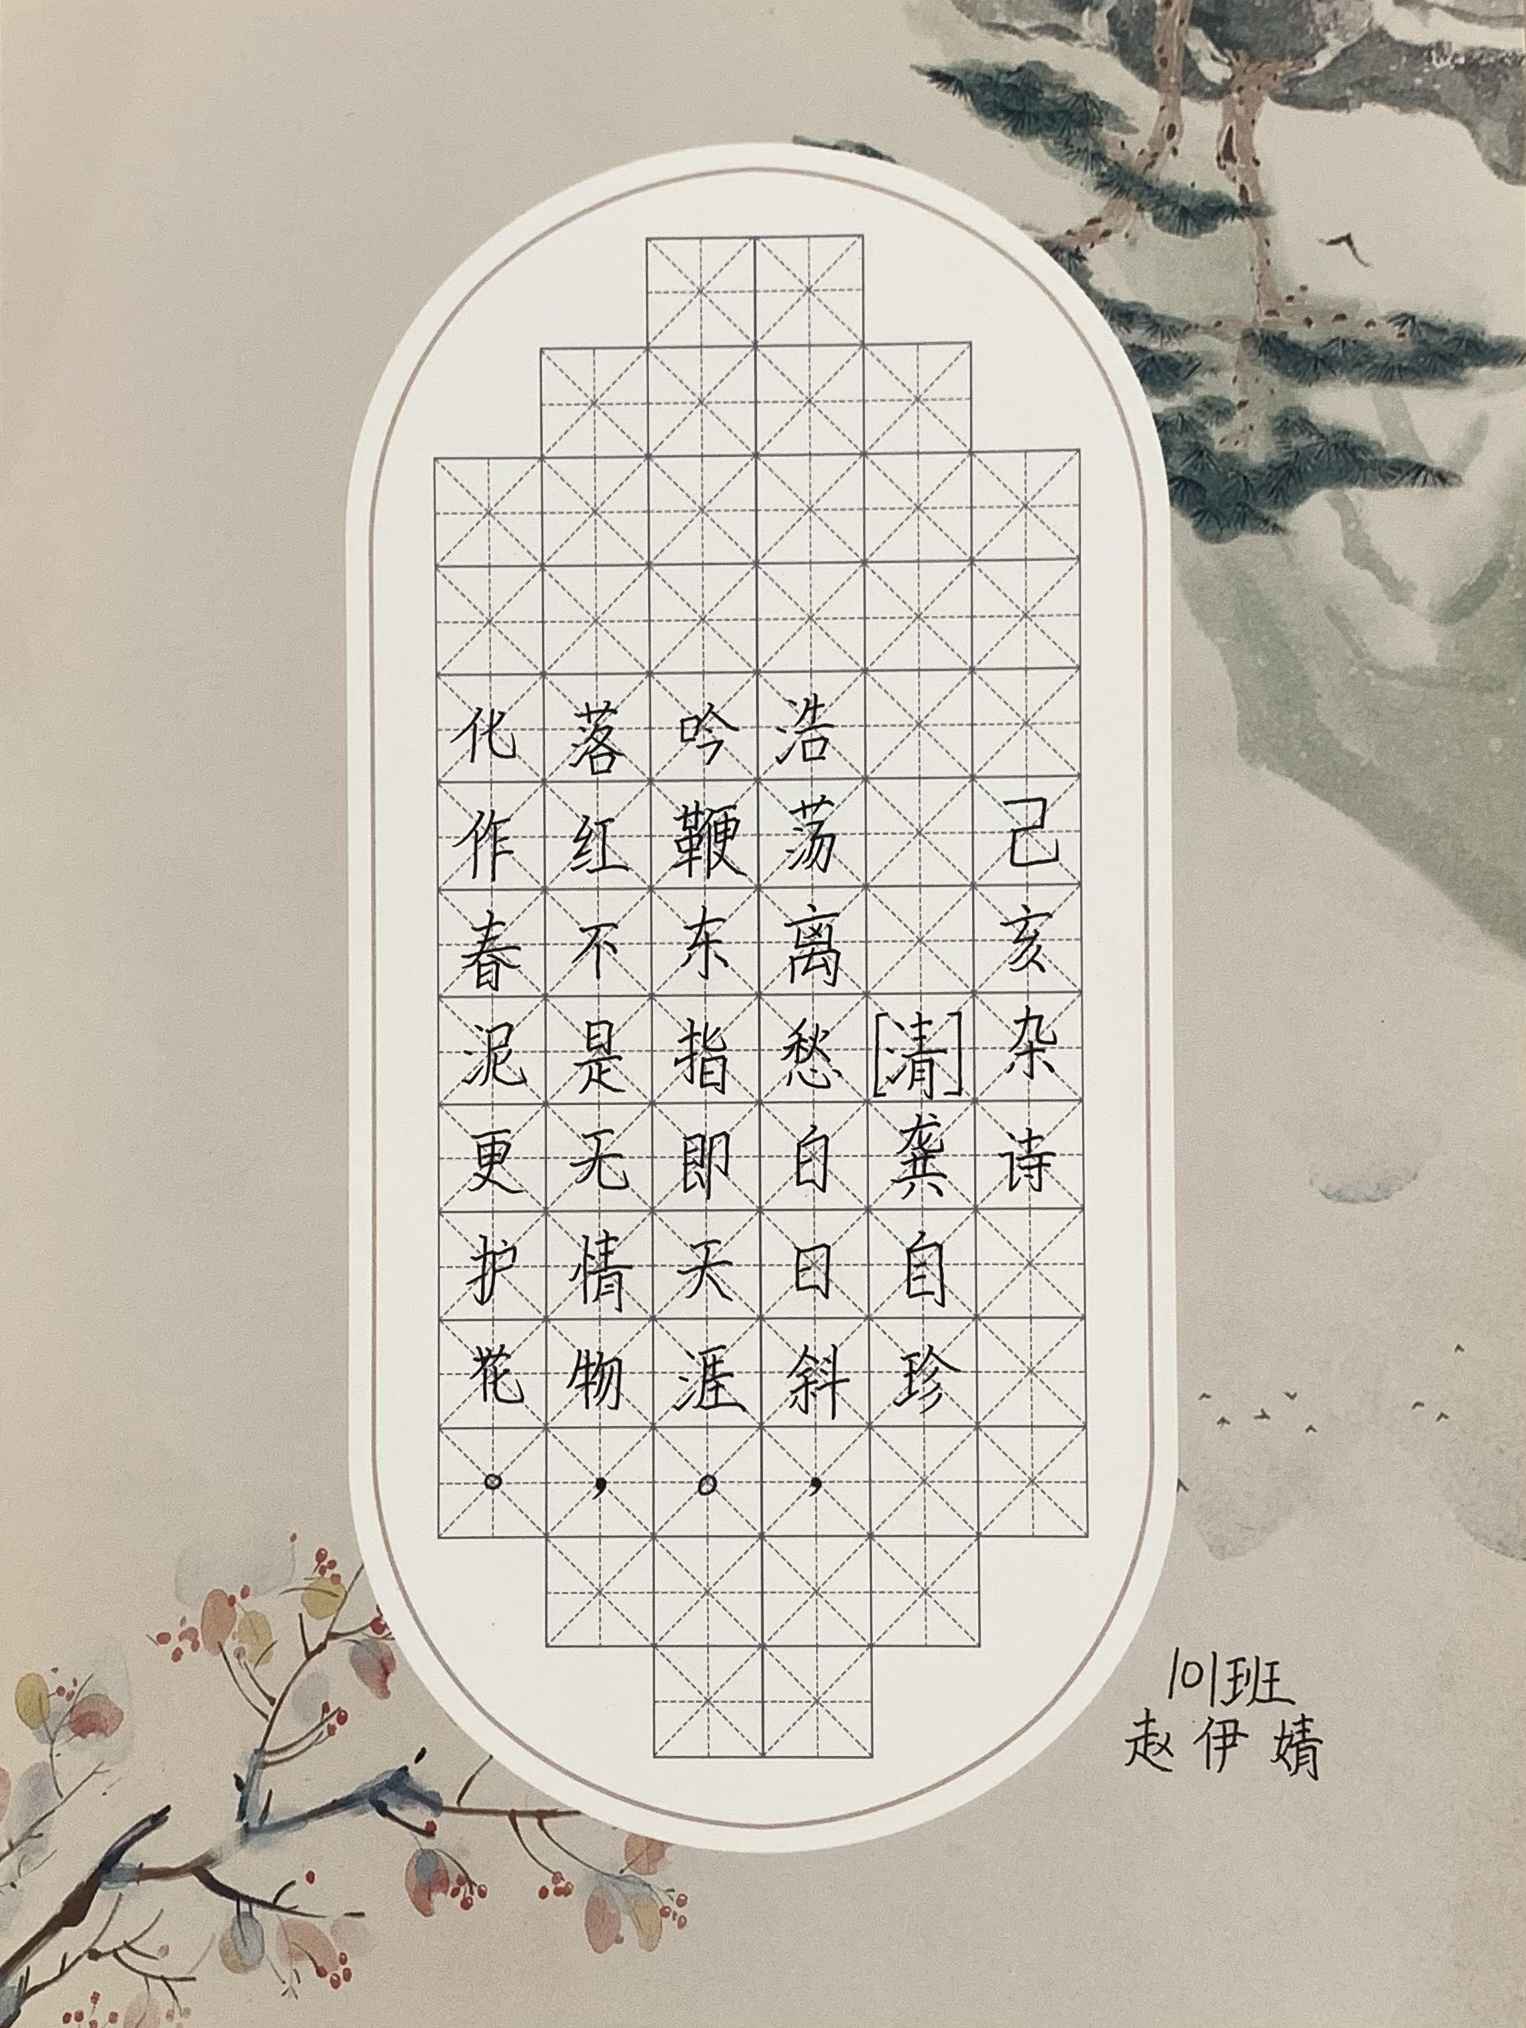 己亥杂诗
[清]龚自珍
浩荡离愁白日斜，
吟鞭东指即天涯。
落红不是无情物，
化作春泥更护花。
101班
赵伊婧